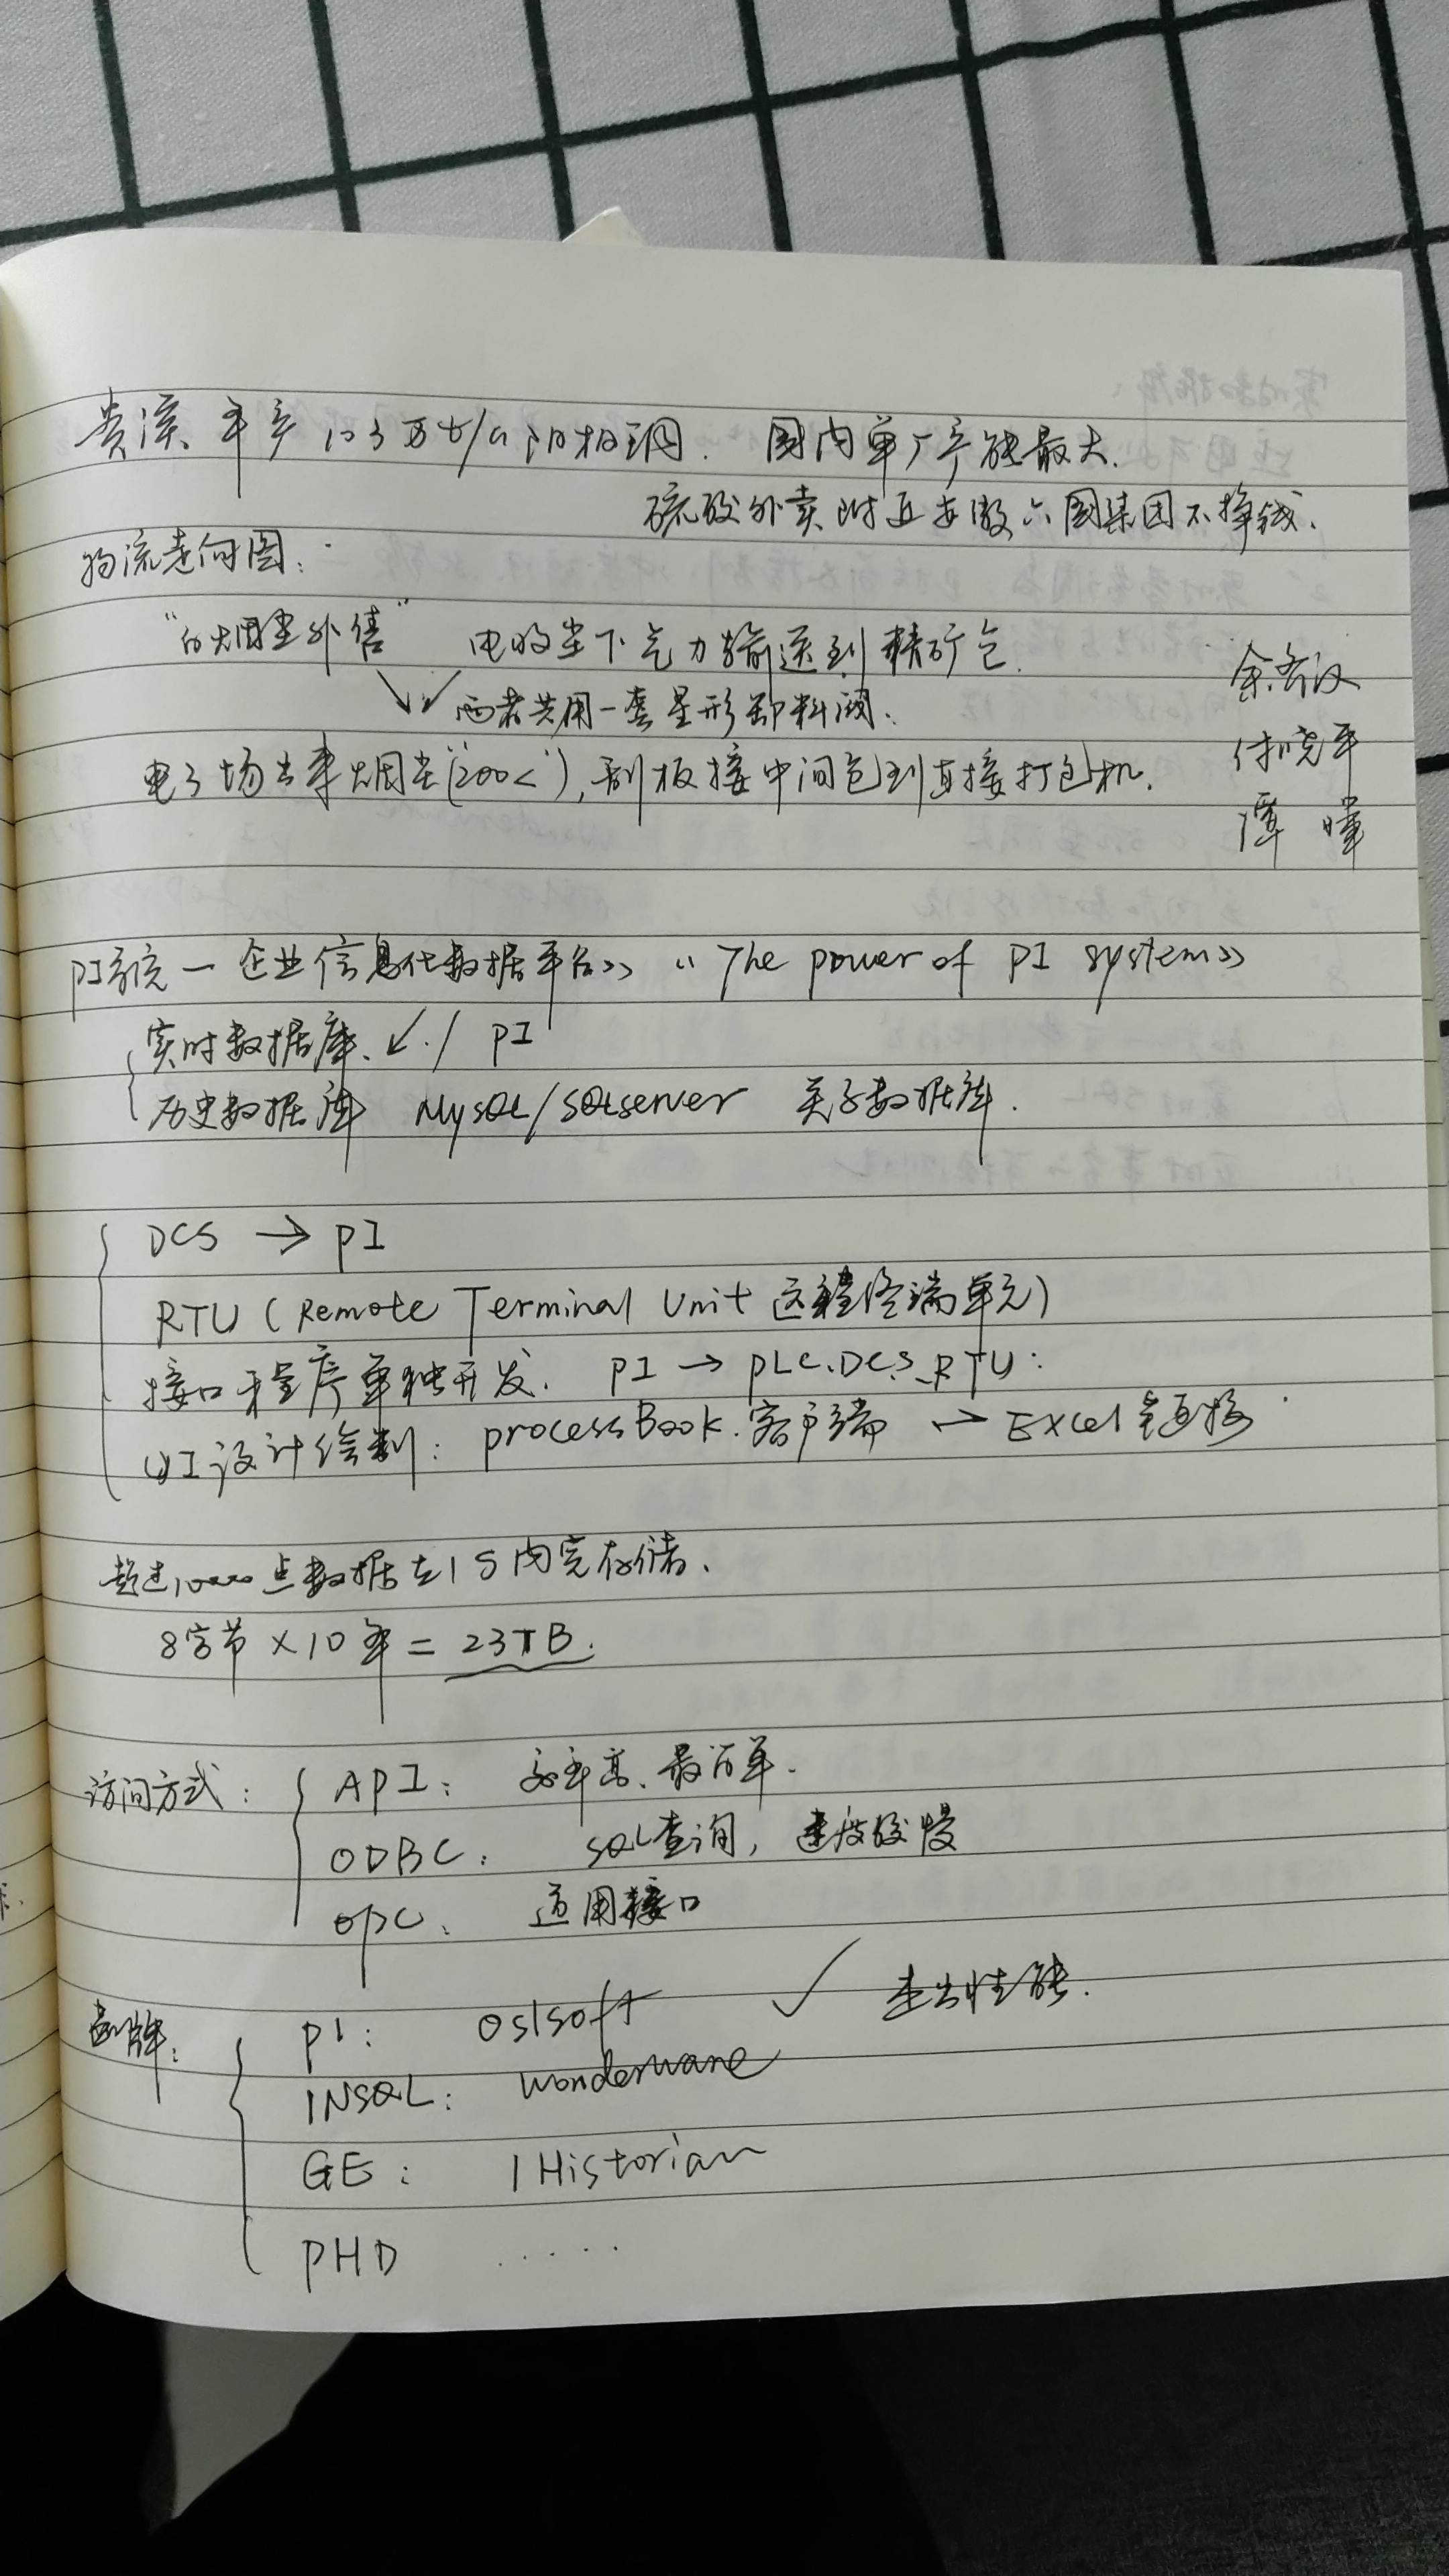 贵溪 年产 103万t/a 阴极铜. 国内单厂产能最大.
硫酸外卖 附近安徽六国集团不挣钱.
物流走向图:
“白烟尘外售” 电收尘下气力输送到精矿仓.
余齐汉
两者共用一套星形卸料阀.
付晓平
电子场出来烟尘(“200<”), 刮板接中间仓到直接打包机.
谭 暐
PI系统一企业信息化数据平台>> << The power of PI system>>
实时数据库. ↙ ./ PI
历史数据库 MySQL/SQLserver 关系数据库.
DCS → PI
RTU (Remote Terminal Unit 远程终端单元)
接口程序单独开发. PI → PLC.DCS.RTU:
UI设计绘制: processBook.客户端 → Excel 链接
超过10000点数据在1S内完存储.
8字节×10年=23TB.
访问方式: API: 效率高、最简单.
ODBC: SQL查询, 速度较慢
OPC: 适用接口
品牌:
PI: OSIsoft ✓ 突出性能.
INSQL: wonderware
GE: IHistorian
PHD .....